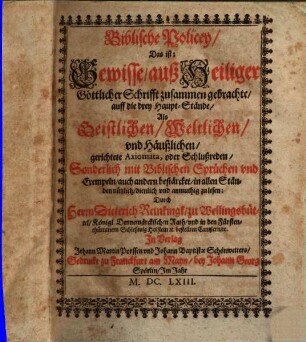 Biblische Policey/
Das ist:
Gewisse/ auß Heiliger
Göttlicher Schrifft zusammen gebrachte/
auff die drey Haupt-Stände/
Als
Geistlichen/ Weltlichen/
vnd Häußlichen/
gerichtete Axiomata, oder Schlußreden/
Sonderlich mit Biblischen Sprüchen vnd
Exempeln/ auch andern bestärcket/ in allen Stän-
den nützlich/ dienlich und anmuthig zu lesen:
Durch
Herrn Dieterich Reinkingk/ zu Wellingsbüt-
tel/ Königl. Dennemärckischen Rath/ vnd in den Fürsten-
thümern Schleßwig Holstein bestelten Cantzlern.
In Verlag
Johann Martin Porssen vnd Johann Baptistae Schönwetters/
Gedruckt zu Franckfurt am Mayn/ bey Johann Georg
Spörlin/ Im Jahr
M. DC. LXIII.